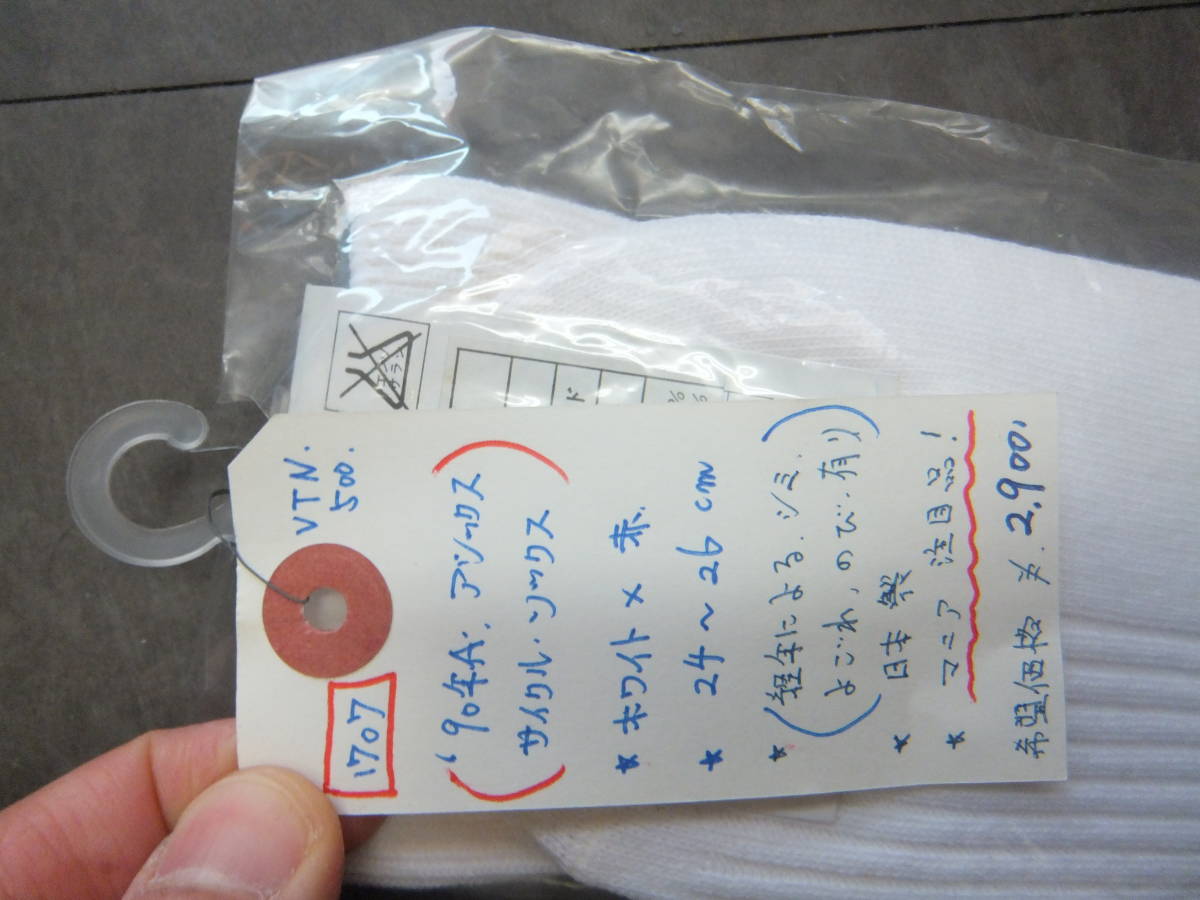 VTN.
500.
1707
('90年代. アシックス
サイクル・ソックス)
* ホワイト × 赤.
* 24 ~ 26 cm
* (経年による. シミ.
よごれ, のび. 有り)
* 日本製
* マニア 注目品!
希望価格 ¥. 2,900,
ド
%